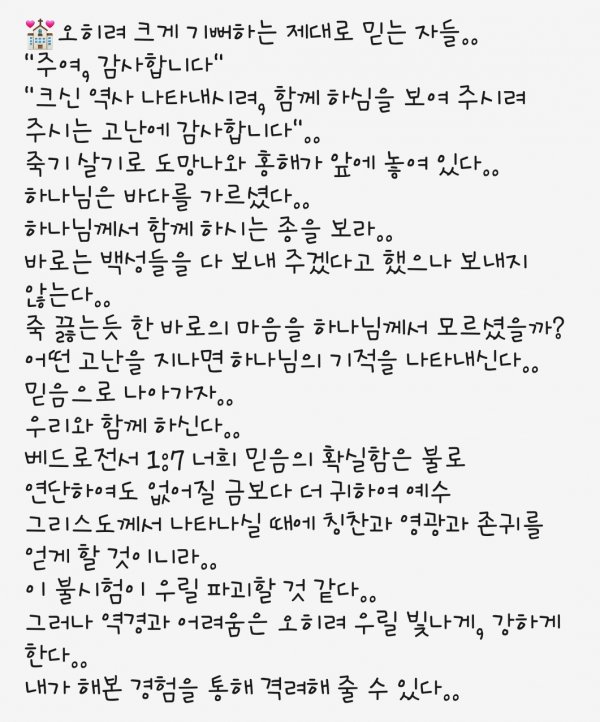 💒오히려 크게 기뻐하는 제대로 믿는 자들。。
"주여, 감사합니다"
"크신 역사 나타내시려, 함께 하심을 보여 주시려
주시는 고난에 감사합니다"。。
죽기 살기로 도망나와 홍해가 앞에 놓여 있다。。
하나님은 바다를 가르셨다。。
하나님께서 함께 하시는 종을 보라。。
바로는 백성들을 다 보내 주겠다고 했으나 보내지
않는다。。
죽 끓는듯 한 바로의 마음을 하나님께서 모르셨을까?
어떤 고난을 지나면 하나님의 기적을 나타내신다。。
믿음으로 나아가자。。
우리와 함께 하신다。。
베드로전서 1:7 너희 믿음의 확실함은 불로
연단하여도 없어질 금보다 더 귀하여 예수
그리스도께서 나타나실 때에 칭찬과 영광과 존귀를
얻게 할 것이니라。。
이 불시험이 우릴 파괴할 것 같다。。
그러나 역경과 어려움은 오히려 우릴 빛나게, 강하게
한다。。
내가 해본 경험을 통해 격려해 줄 수 있다。。